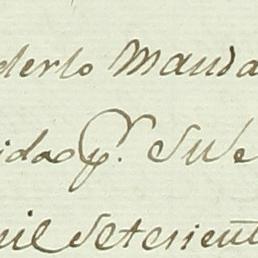 derlo Manda
idas pr. Su e
mil setecient